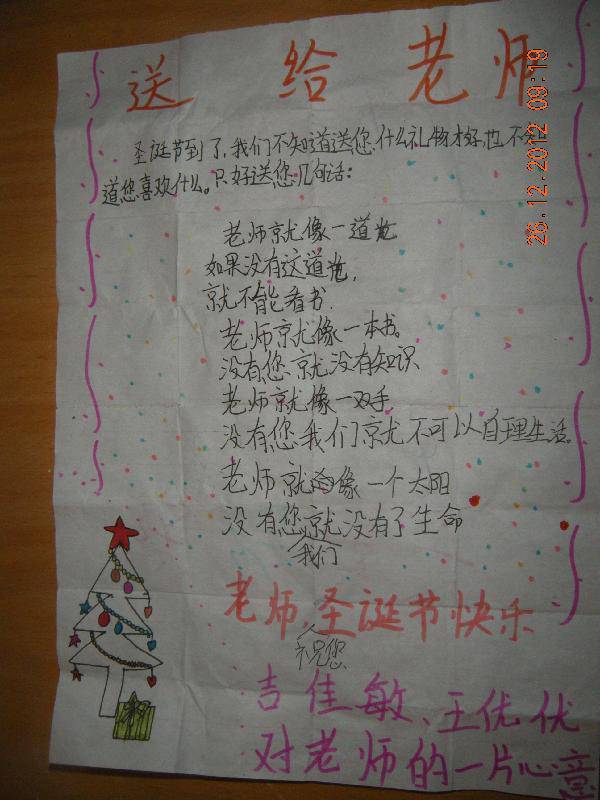 送给老师
圣诞节到了,我们不知道送您什么礼物才好,也不知
道您喜欢什么。只好送您几句话:
老师就像一道光
如果没有这道光,
就不能看书.
老师就像一本书。
没有您就没有知识
老师就像一双手
没有您我们就不可以自理生活。
老师就像一个太阳
没有您就没有了生命
我们
老师,圣诞节快乐
祝您
吉佳敏、王优优
对老师的一片心意
26.12.2012 09:19